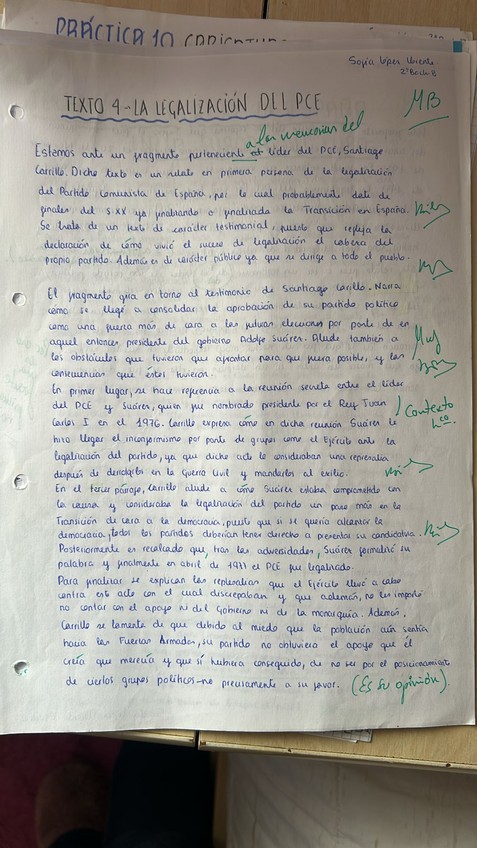 PRÁCTICA 10
Sofía López
2º Bach B
TEXTO 4 - LA LEGALIZACIÓN DEL PCE
MB
a las memorias del
Estamos ante un fragmento perteneciente al líder del PCE, Santiago
Carrillo. Dicho texto es un relato en primera persona de la legalización
del Partido Comunista de España, por lo cual probablemente data de
finales del S.XX ya finalizando o finalizada la Transición en España.
Se trata de un texto de carácter testimonial, puesto que refleja la
declaración de cómo vivió el suceso de legalización el cabeza del
propio partido. Además es de carácter público ya que se dirige a todo el pueblo.
El fragmento gira en torno al testimonio de Santiago Carrillo. Narra
cómo se llegó a consolidar la aprobación de su partido político
como una fuerza más de cara a las futuras elecciones por parte de en
aquel entonces presidente del gobierno Adolfo Suárez. Alude también a
los obstáculos que tuvieron que afrontar para que fuera posible, y las
consecuencias que éstos tuvieron.
Muy
bien
En primer lugar, se hace referencia a la reunión secreta entre el líder
del PCE y Suárez, quien fue nombrado presidente por el Rey Juan
Carlos I en el 1976. Carrillo expresa cómo en dicha reunión Suárez le
Contexto
hco.
hizo llegar el inconformismo por parte de grupos como el Ejército ante la
legalización del partido, ya que dicho acto lo consideraban una represalia
después de derrotarles en la Guerra Civil y mandarlos al exilio.
Bien
En el tercer párrafo, Carrillo alude a cómo Suárez estaba comprometido con
la causa y consideraba la legalización del partido un paso más en la
Transición de cara a la democracia, puesto que si se quería alcanzar la
democracia, todos los partidos deberían tener derecho a presentar su candidatura.
Bien
Posteriormente es recalcado que, tras las adversidades, Suárez formalizó su
palabra y finalmente en abril de 1977 el PCE fue legalizado.
Para finalizar se explican las represalias que el Ejército llevó a cabo
contra este acto con el cual discrepaban y que además, no les importó
no contar con el apoyo ni del Gobierno ni de la monarquía. Además,
Carrillo se lamenta de que debido al miedo que la población aún sentía
hacia las Fuerzas Armadas, su partido no obtuviera el apoyo que él
creía que merecía y que sí hubiera conseguido, de no ser por el posicionamiento
de ciertos grupos políticos no precisamente a su favor. (Es su opinión).